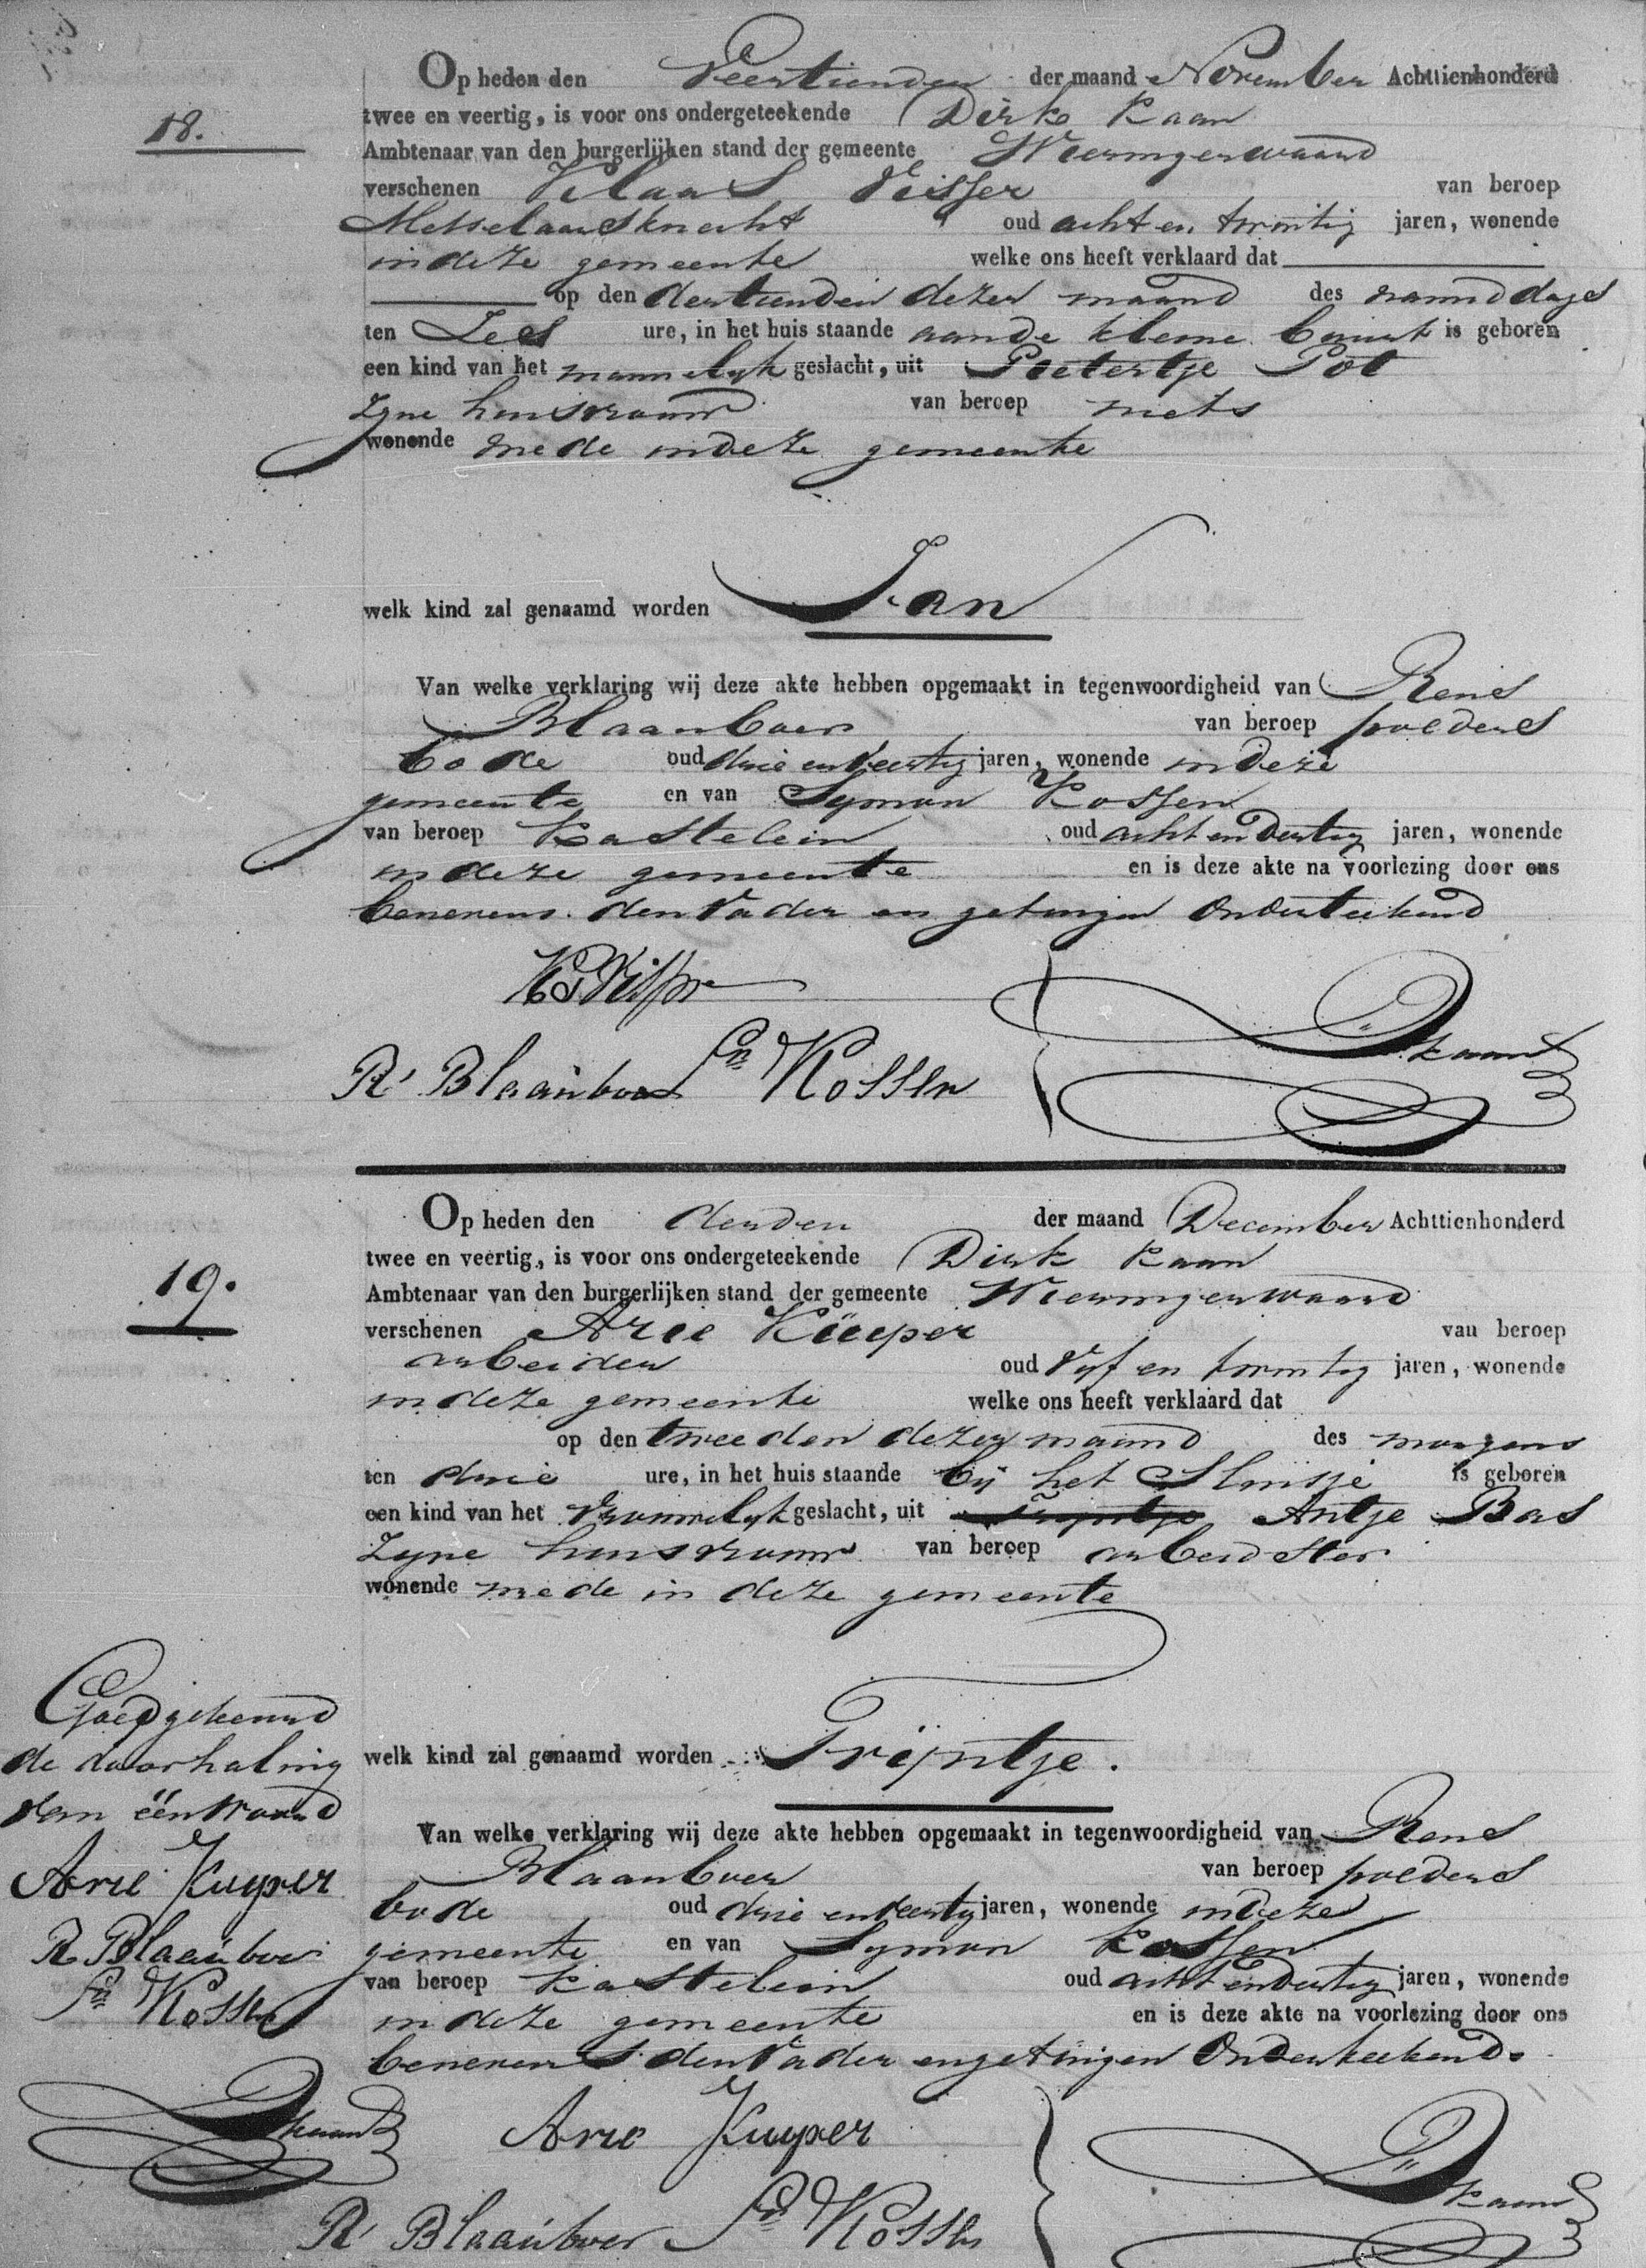 18.
Op heden den Veertienden der maand November Achttienhonderd
twee en veertig, is voor ons ondergeteekende Dirk Kaan
Ambtenaar van den burgerlijken stand der gemeente Wieringerwaard
verschenen Klaas Visser van beroep
Metselaarsknecht oud acht en twintig jaren, wonende
in deze gemeente welke ons heeft verklaard dat
op den dertienden dezer maand des namiddags
ten Zes ure, in het huis staande aan de kleine buurt is geboren
een kind van het mannelijk geslacht, uit Pietertje Pot
zyne huisvrouw van beroep niets
wonende mede in deze gemeente
welk kind zal genaamd worden Jan
Van welke verklaring wij deze akte hebben opgemaakt in tegenwoordigheid van Rens
Blaauboer van beroep polders
bode oud drie en veertig jaren, wonende in deze
gemeente en van Symon Kossen
van beroep Kastelein oud acht en dertig jaren, wonende
in deze gemeente en is deze akte na voorlezing door ons
benevens den Vader en getuigen Onderteekend
Visser
R Blaauboer Sn Kossen
D Kaan
19.
Op heden den derden der maand December Achttienhonderd
twee en veertig, is voor ons ondergeteekende Dirk Kaan
Ambtenaar van den burgerlijken stand der gemeente Wieringerwaard
verschenen Arie Küyper van beroep
arbeider oud Vyf en twintig jaren, wonende
in deze gemeente welke ons heeft verklaard dat
op den tweeden dezer maand des morgens
ten drie ure, in het huis staande bij het Sluisje is geboren
een kind van het Vrouwelyk geslacht, uit Trijntje Antje Bas
Zyne huisvrouw van beroep arbeidster
wonende mede in deze gemeente
welk kind zal genaamd worden Trijntje.
Van welke verklaring wij deze akte hebben opgemaakt in tegenwoordigheid van Rens
Blaauboer van beroep polders
bode oud drie en veertig jaren, wonende in deze
gemeente en van Symon Kossen
van beroep Kastelein oud acht en dertig jaren, wonende
in deze gemeente en is deze akte na voorlezing door ons
benevens den Vader en getuigen Onderteekend.
Goedgekeurd
de doorhaling
van één woord
Arie Kuyper
R Blaauboer
Sn Kossen
D Kaan
Arie Kuyper
R Blaauboer Sn Kossen
D Kaan